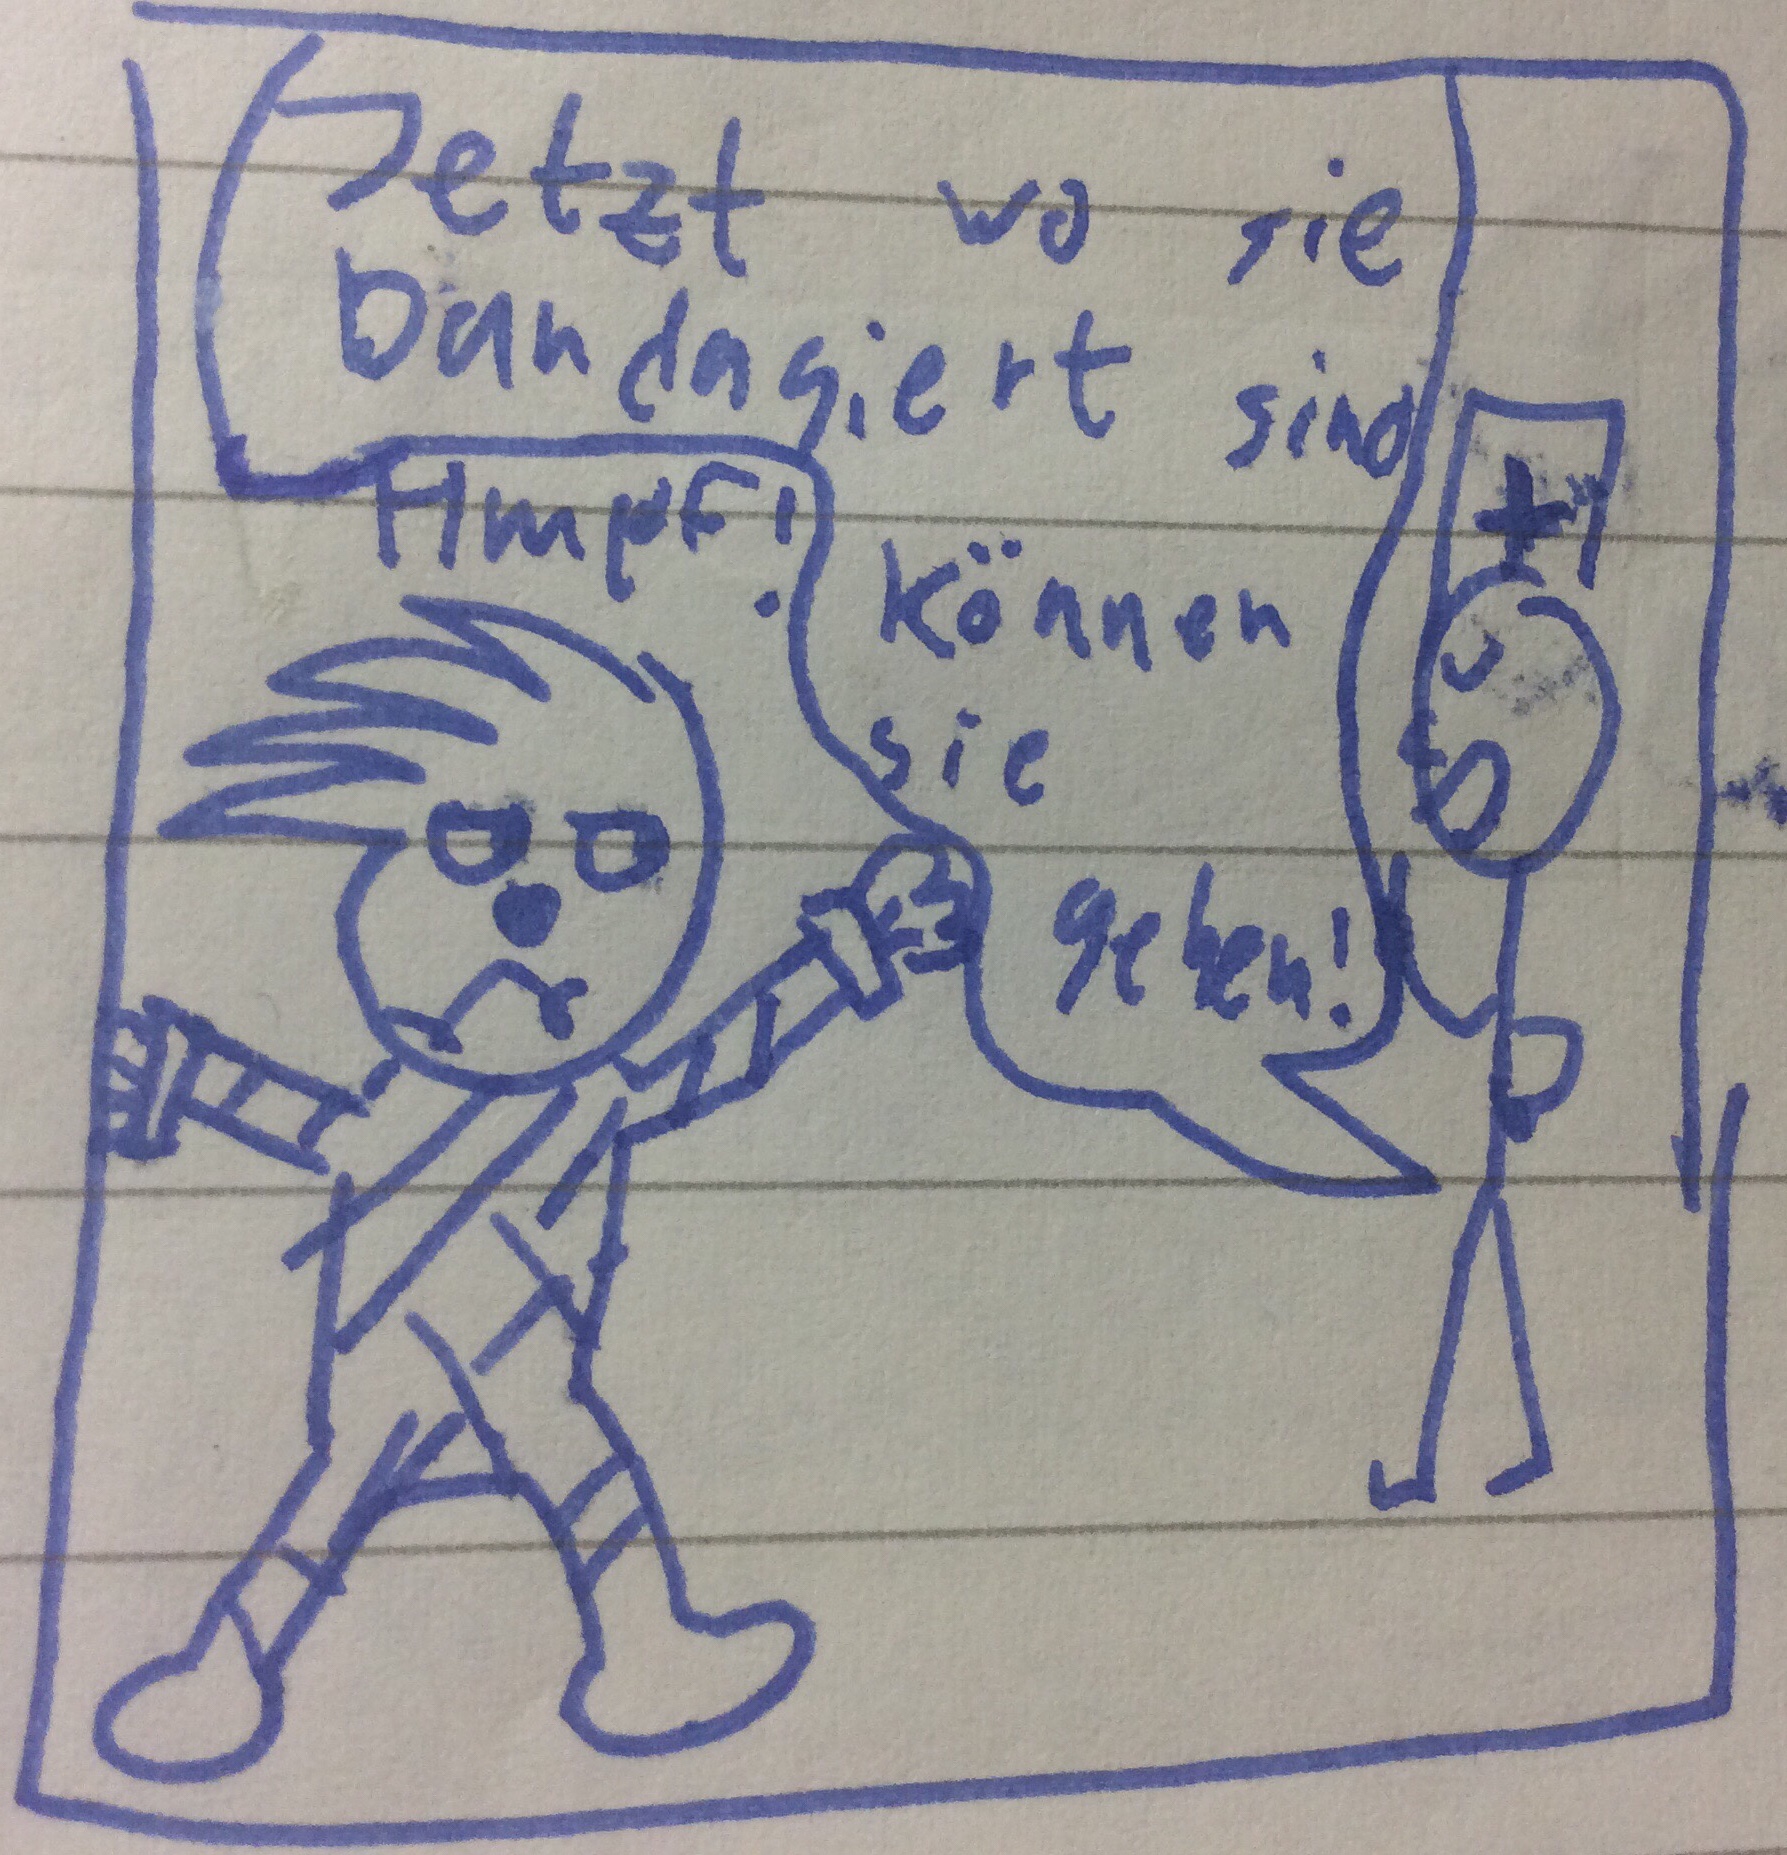 Jetzt wo sie
bandagiert sind
können
sie
gehen!
Hmpf!